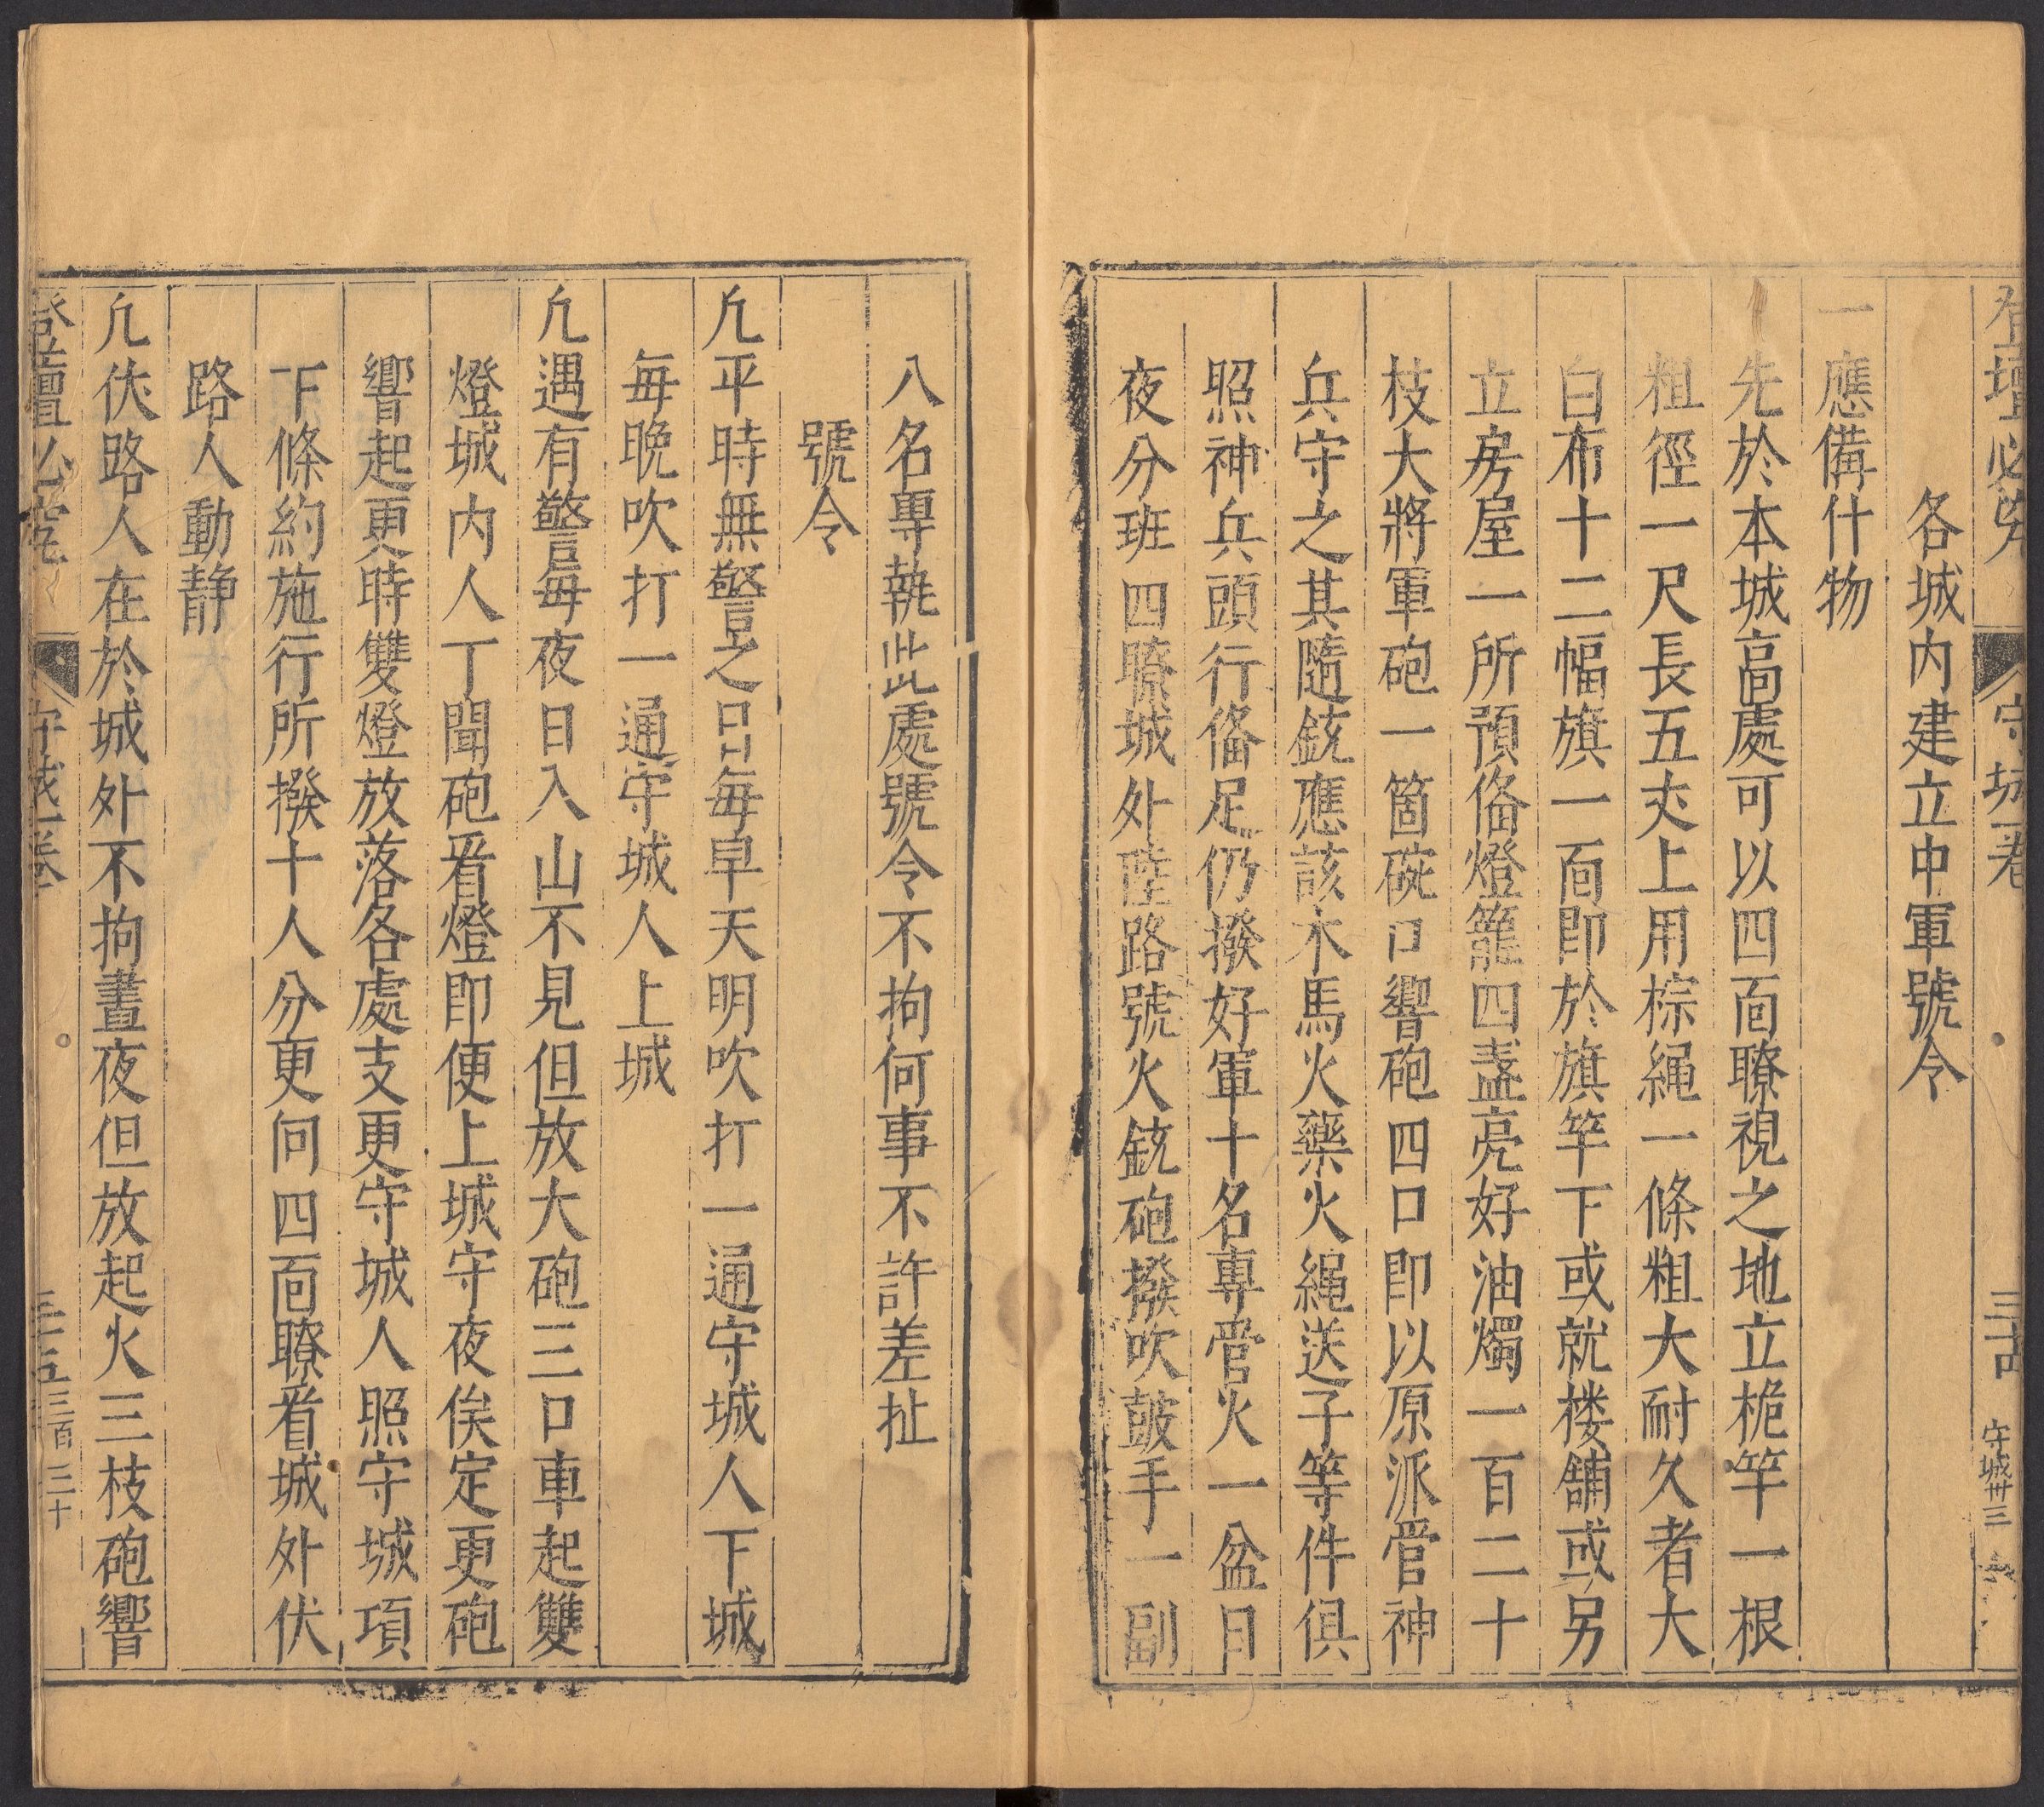 登壇必究 守城一卷 三十四 守城卅三
各城内建立中軍號令
一應備什物
先於本城高處可以四面瞭視之地立桅竿一根
粗徑一尺長五丈上用棕繩一條粗大耐久者大
白布十二幅旗一面即於旗竿下或就楼舖或另
立房屋一所預俻燈籠四盞亮好油燭一百二十
枝大將軍砲一箇碗口響砲四口即以原派管神
兵守之其隨銃應該木馬火藥火繩送子等件俱
照神兵頭行俻足仍撥好軍十名專管火一盆日
夜分班四瞭城外陸路號火銃砲撥吹皷手一副
八名專執此處號令不拘何事不許差扯
號令
凢平時無警之日每早天明吹打一通守城人下城
每晚吹打一通守城人上城
凢遇有警每夜日入山不見但放大砲三口車起雙
燈城内人丁聞砲看燈即便上城守夜俟定更砲
響起更時雙燈放落各處支更守城人照守城項
下條約施行所撥十人分更向四面瞭看城外伏
路人動静
凢伏路人在於城外不拘晝夜但放起火三枝砲響
登壇必究 守城一卷 三十五 三百三十